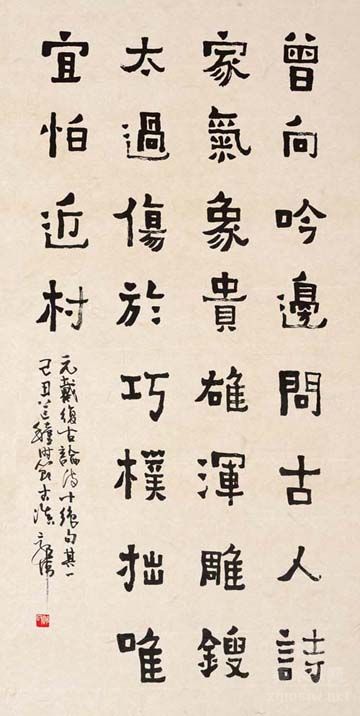 曾向吟邊問古人詩
家氣象貴雄渾雕鎪
太過傷於巧樸拙唯
宜怕近村
元戴復古論詩十絕句其一
己丑芒種時節